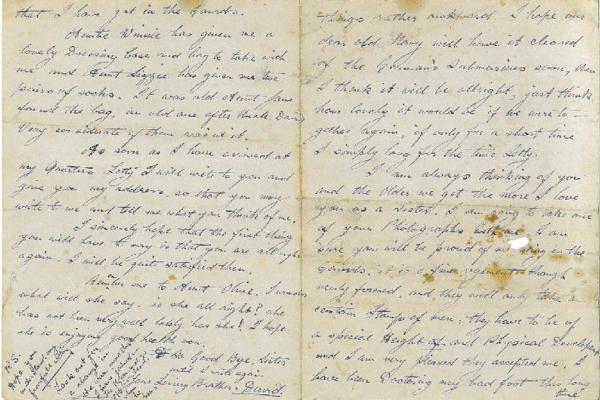 that I have got in the Guards.
Auntie Winnie has given me a
lovely Dressing Case and bag to take with
me and Aunt Lizzie has given me two
pairs of socks. It was old Aunt Jane
found the bag, an old one after Uncle Dan
Very considerate of them wasn't it.
As soon as I have arrived at
my Quarters Lotty I will write to you and
give you my address, so that you may
write to me and tell me what you think of me.
I sincerely hope that the first thing
you will have to say is that you are all right
again. I will be quite satisfied then.
Remember me to Aunt Olive. I wonder
what will she say. is she all right? she
has not been very well lately has she? I hope
she is enjoying good health now.
Good Bye, Sister
until I write again.
Your Loving Brother. David.
P.S.
Look out for
things rather awkward. I hope our
dear old Navy will have it cleared
of the Germain's Submarines soon, then
I think it will be allright, just think
how lovely it would be if we were to-
gether again, if only for a short time
I simply long for the time Lotty.
I am always thinking of you
and the older we get the more I love
you as a sister. I am going to take one
of your Photographs with me. I am
sure you will be proud of me being in the
Guards. it is a fine regiment though
newly formed, and they will only take a
certain Stamp of men, they have to be of
a special Height of and Physical Development
and I am very pleased they accepted me. I
have been Doctoring my bad foot this long
time